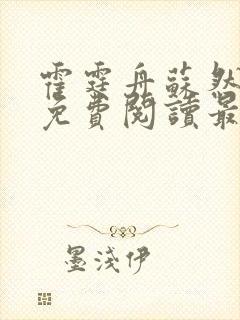 霍霆舟蘇然
免費閱讀最
墨淺伊